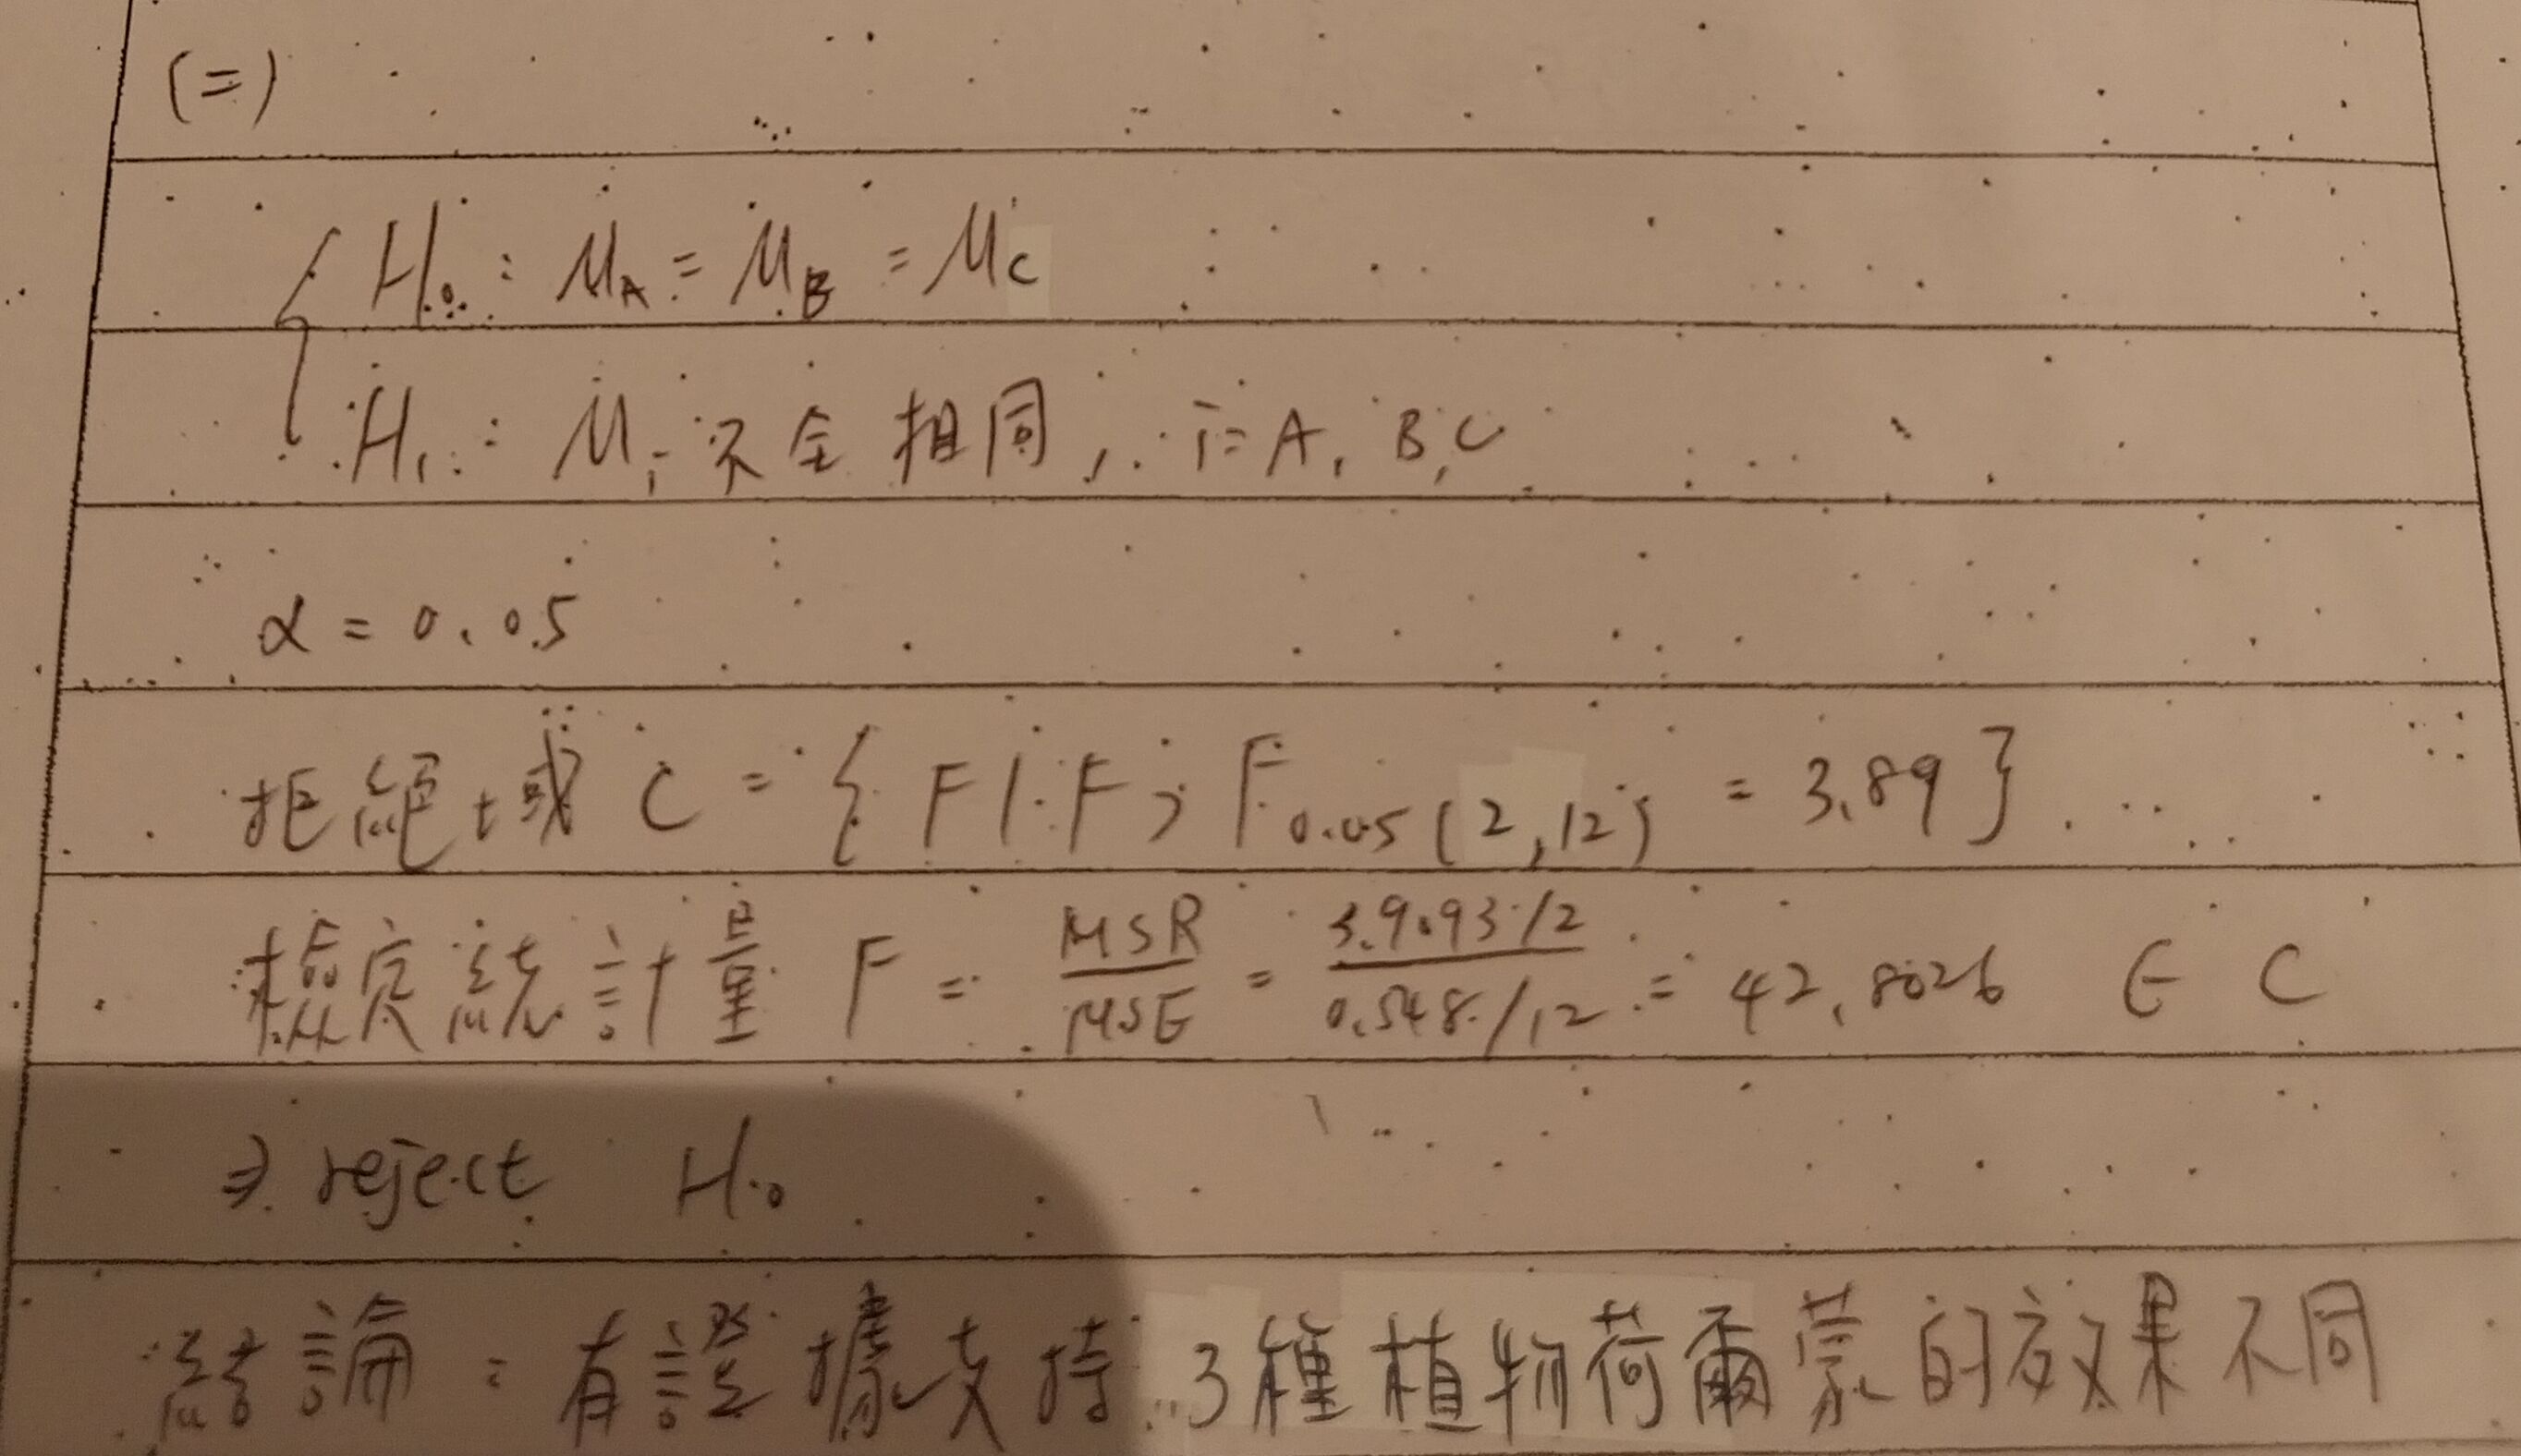 (二)
H₀ : μ_A = μ_B = μ_C
H₁ : μᵢ 不全相同, i = A, B, C
α = 0.05
拒絕域 C = { F | F > F₀.₀₅(2,12) = 3.89 }
檢定統計量 F = MSR/MSE = (3.9093/2)/(0.548/12) = 42.8026 ∈ C
⇒ reject H₀
結論 : 有證據支持 3種植物荷爾蒙的效果不同